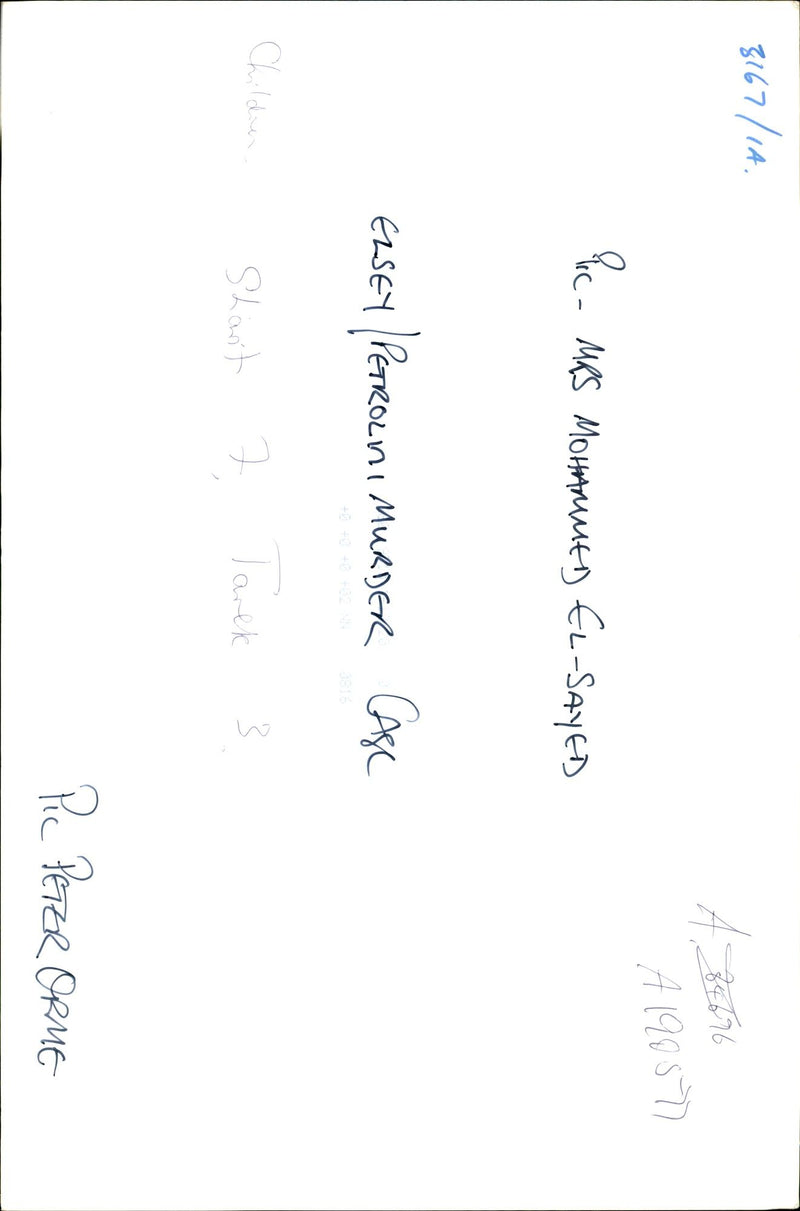 3167/1A.
Pic - MRS MOHAMMED EL-SAYED
A.
A190577
ELSEY/PETROLINI MURDER CASE
Children. Sharif 7, Tarek 3.
PIC PETER ORME